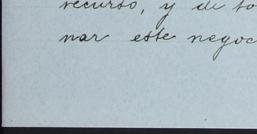 recurso, y de to
nar este negoc